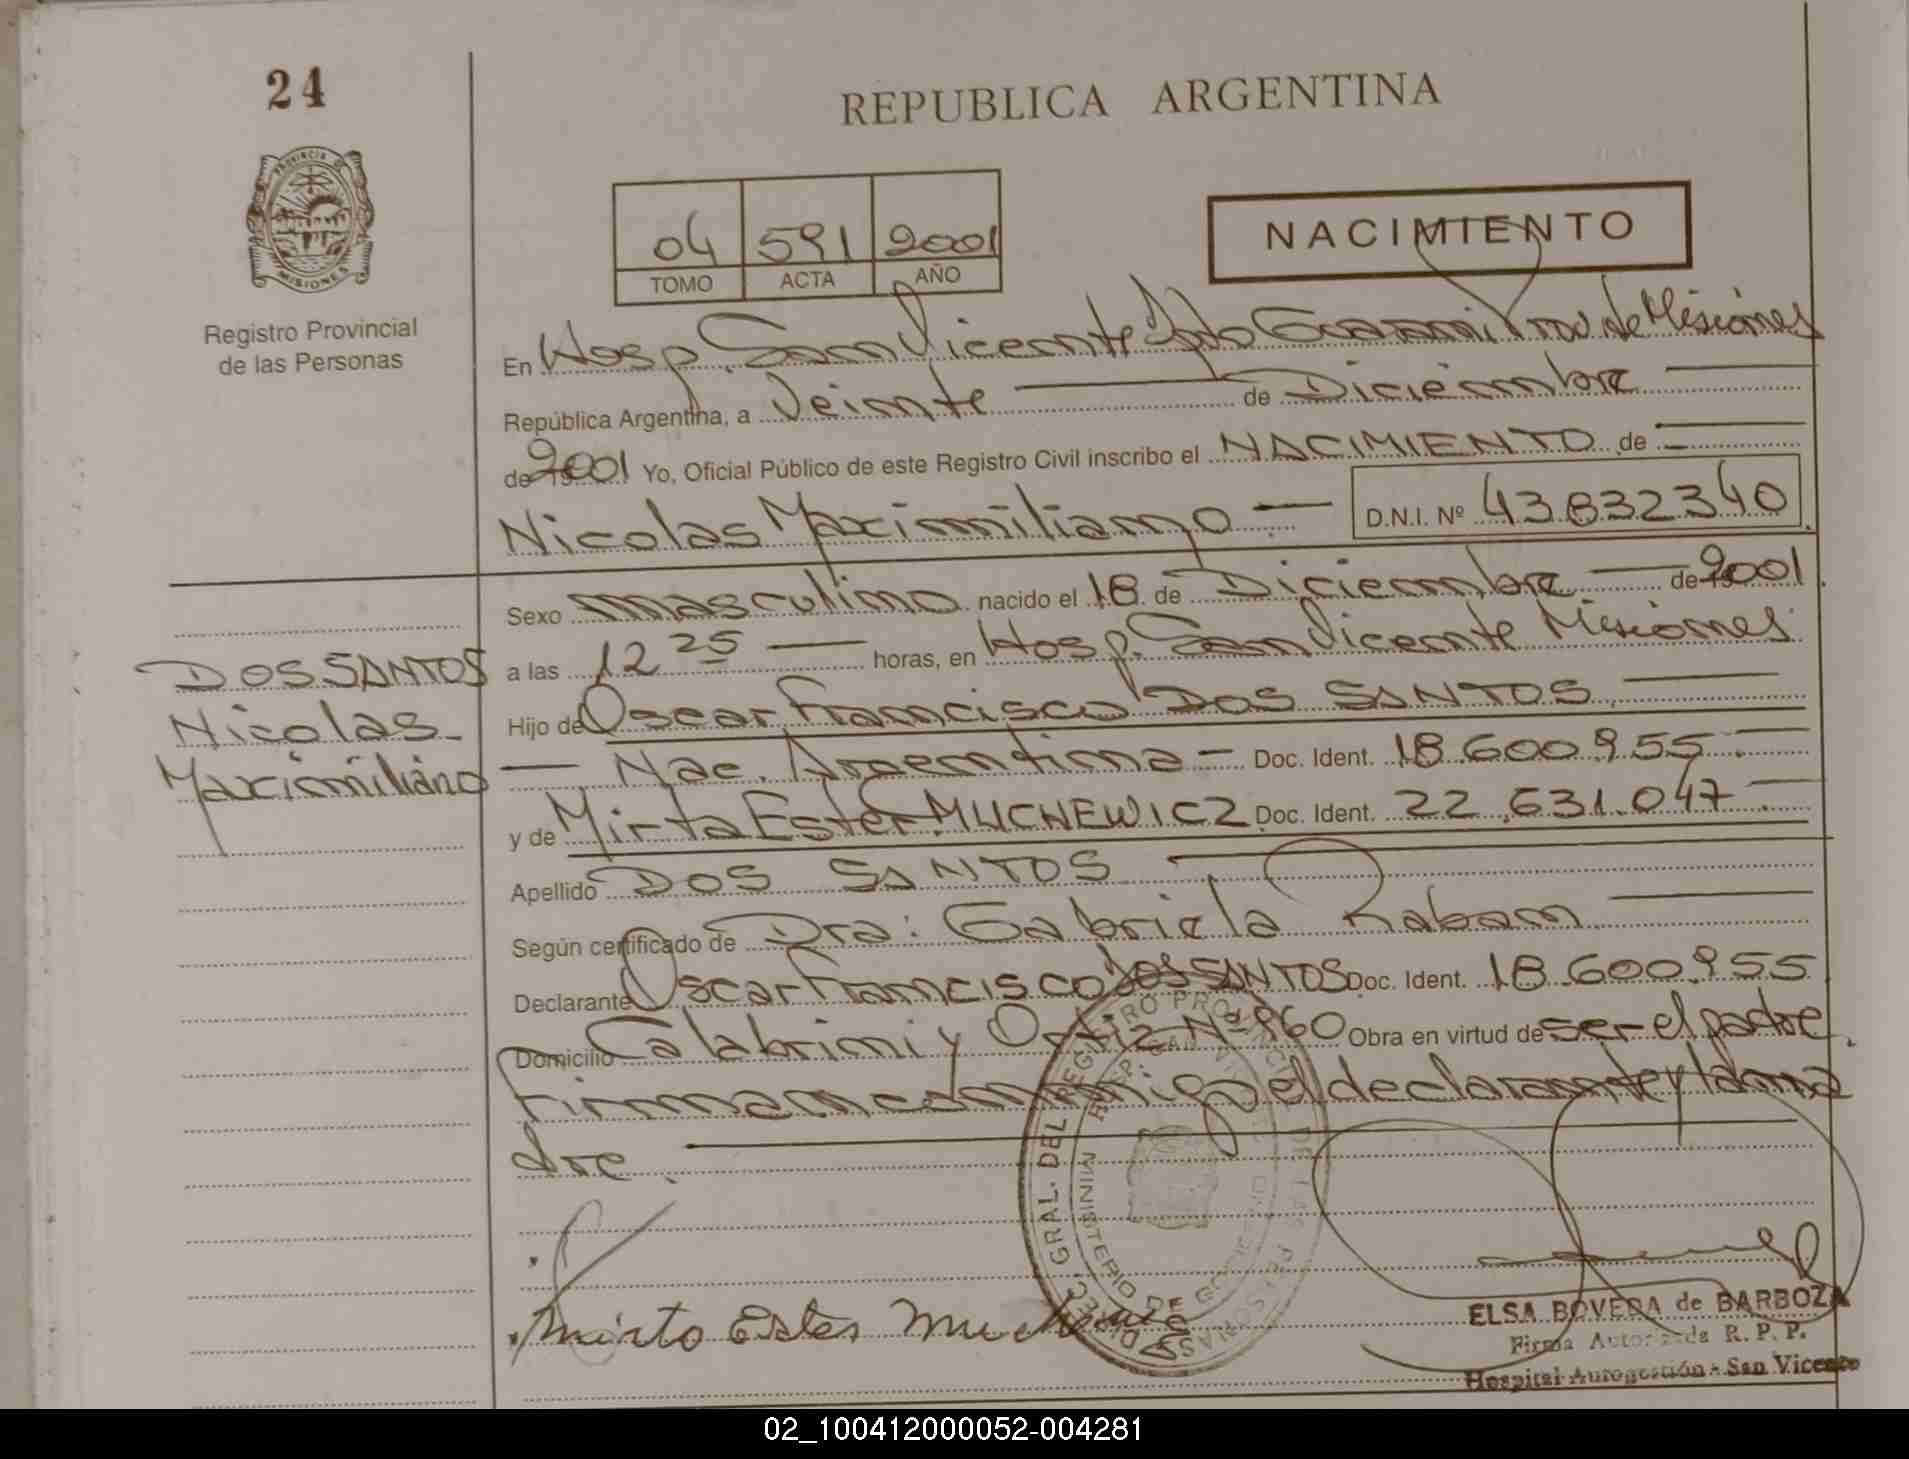 24
REPUBLICA ARGENTINA
PROVINCIA DE
MISIONES
Registro Provincial
de las Personas
04 591 2001
TOMO ACTA AÑO
NACIMIENTO
En Hosp. San Vicente Dpto Guarani Prov de Misiones
República Argentina, a Veinte de Diciembre
de 2001 Yo, Oficial Público de este Registro Civil inscribo el NACIMIENTO de
Nicolas Maximiliano D.N.I. Nº 43832340
Sexo masculino nacido el 18 de Diciembre de 2001
a las 12 25 horas, en Hosp. San Vicente Misiones
Hijo de Oscar Francisco DOS SANTOS
Nac. Argentina - Doc. Ident. 18.600.955
y de Mirta Ester MUCHEWICZ Doc. Ident. 22.631.047
Apellido DOS SANTOS
Según certificado de Dra: Gabriela Raban
Declarante Oscar Francisco DOS SANTOS Doc. Ident. 18.600.955
Domicilio Calabrini y Ortiz Nº 860 Obra en virtud de ser el padre
Firman conmigo el declarante y la ma
dre.
DOS SANTOS
Nicolas
Maximiliano
DIREC. GRAL. DEL REGISTRO PROVINCIAL DE LAS PERSONAS
HOSP. SAN VICENTE
MINISTERIO DE GOBIERNO
Mirta Ester
ELSA BOVEDA de BARBOZA
Firma Autorizada R. P. P.
Hospital Autogestión - San Vicente
02_100412000052-004281